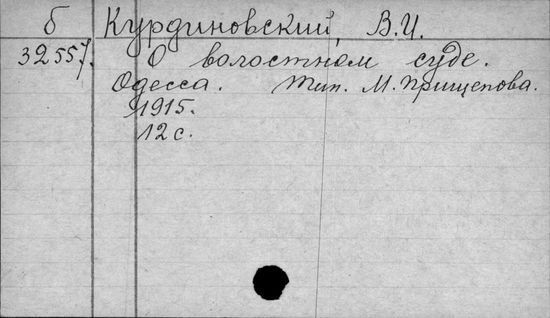 б Курдиновский, В.И.
32557. О волостном суде.
Одесса. Тип. М. Прищепова.
1915.
12 с.